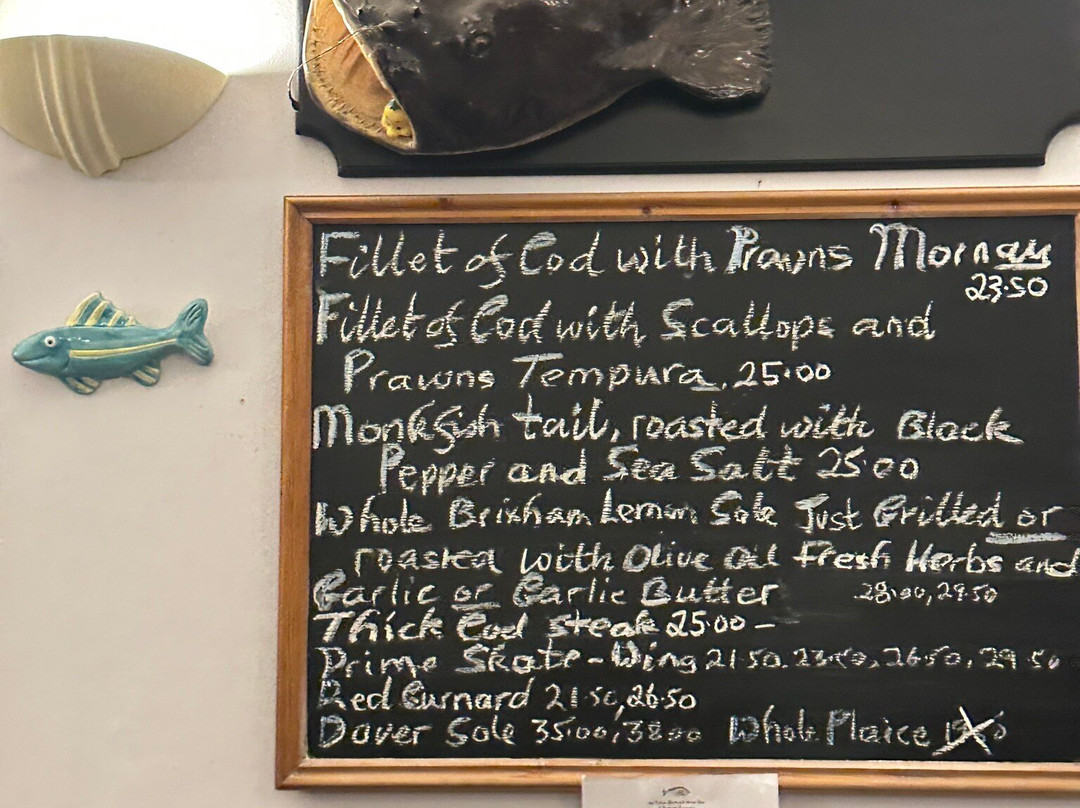 Fillet of Cod with Prawns Mornay
23.50
Fillet of Cod with Scallops and
Prawns Tempura. 25.00
Monkfish tail, roasted with Black
Pepper and Sea Salt 25.00
Whole Brixham Lemon Sole Just Grilled or
roasted with Olive Oil Fresh Herbs and
Garlic or Garlic Butter 28.00, 29.50
Thick Cod steak 25.00 -
Prime Skate-Wing 21.50. 23.50, 26.50, 29.50
Red Gurnard 21.50, 26.50
Dover Sole 35.00, 38.00 Whole Plaice